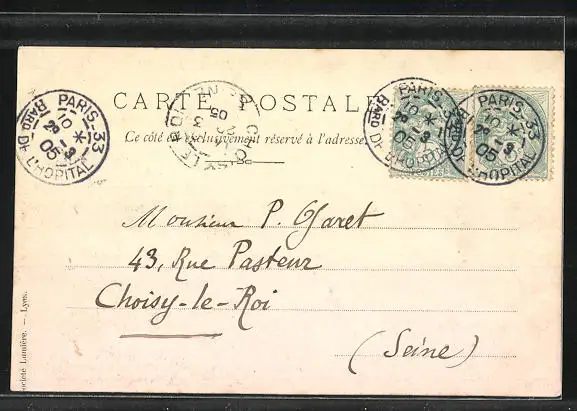 CARTE POSTALE
Ce côté est exclusivement réservé à l'adresse.
PARIS-33
10 *
28 -3
05
BARD DE L'HOPITAL
CHOISY-LE-ROI
SEINE
3
05
PARIS-33
10 *
28 -3
05
BARD DE L'HOPITAL
PARIS-33
10 *
28 -3
05
L'HOPITAL
POSTES
Monsieur P. Garet
43, Rue Pasteur
Choisy-le-Roi
(Seine)
Société Lumière. — Lyon.